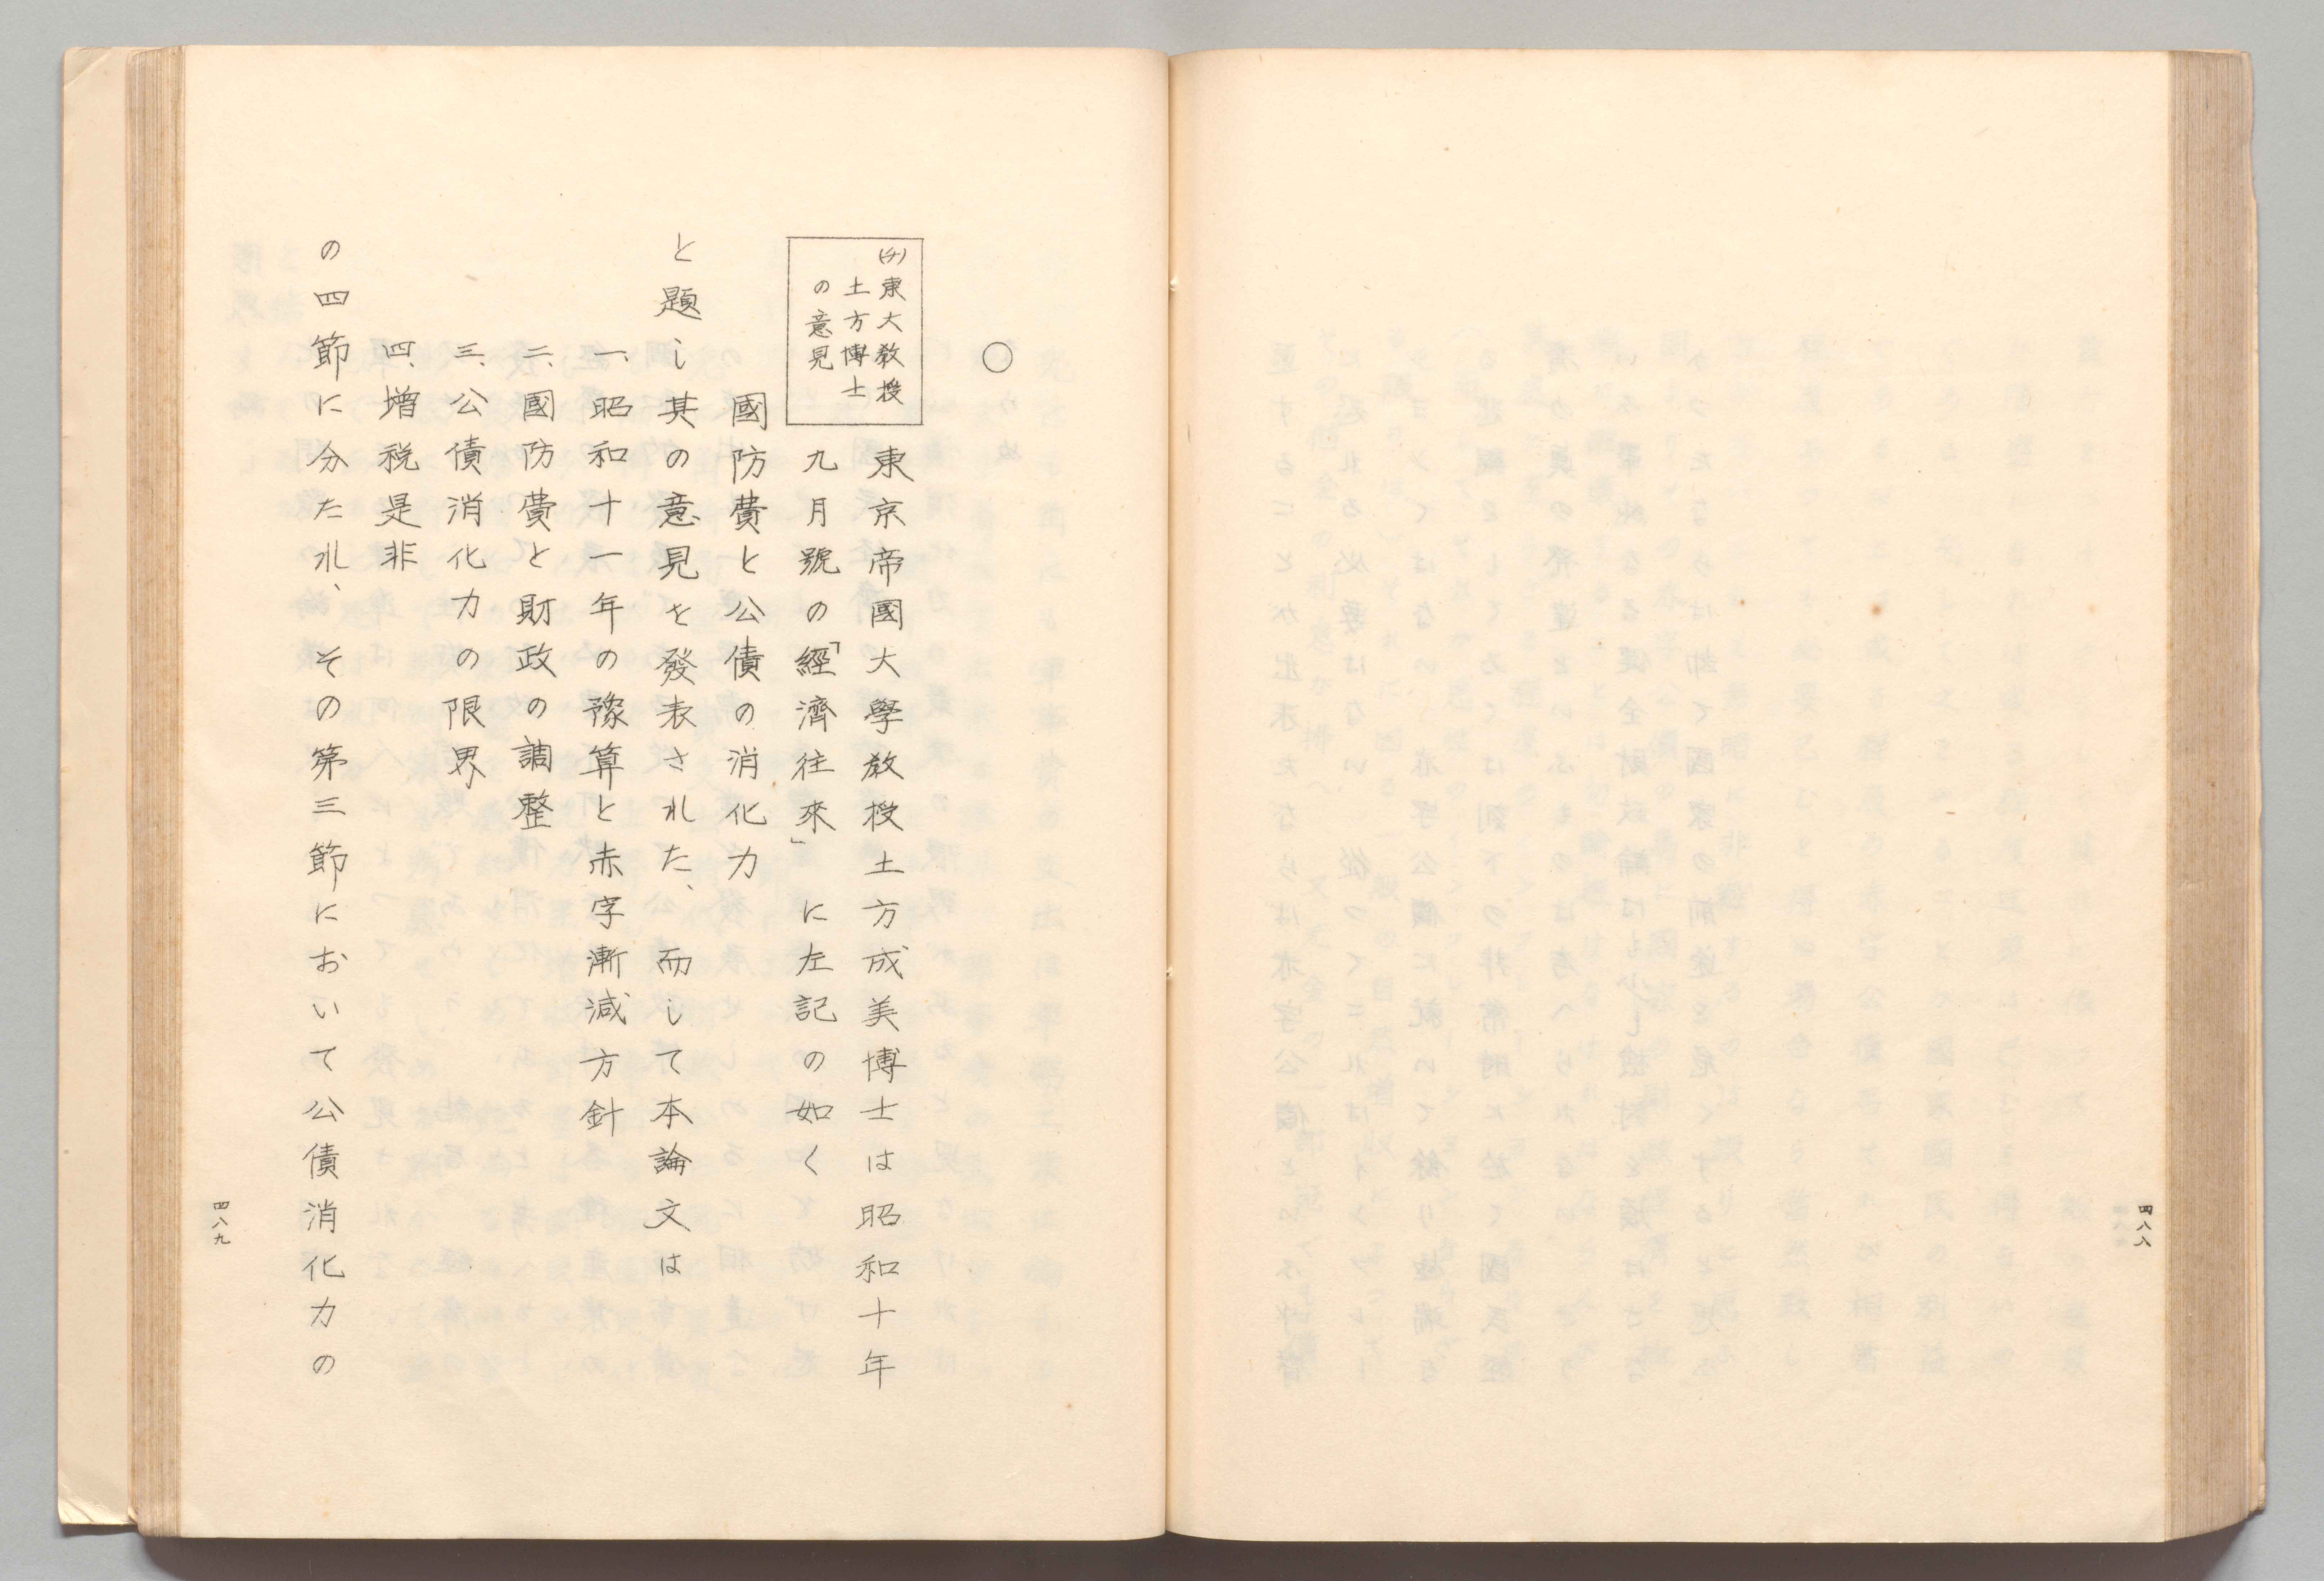 四八八
〇
(チ)東大教授
土方博士
の意見
東京帝國大學教授土方成美博士は昭和十年
九月號の「經濟往來」に左記の如く
國防費と公債の消化力
と題し其の意見を發表された、而して本論文は
一、昭和十一年の豫算と赤字漸減方針
二、國防費と財政の調整
三、公債消化力の限界
四、增税是非
の四節に分たれ、その第三節において公債消化力の
四八九